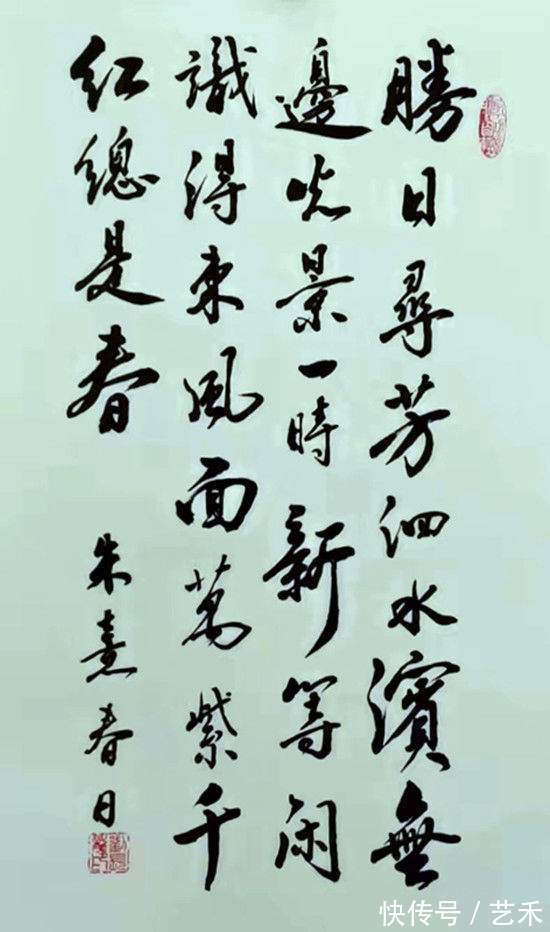 勝日尋芳泗水濱無
邊光景一時新等閑
識得東風面萬紫千
紅總是春
朱熹春日
快传号／艺禾